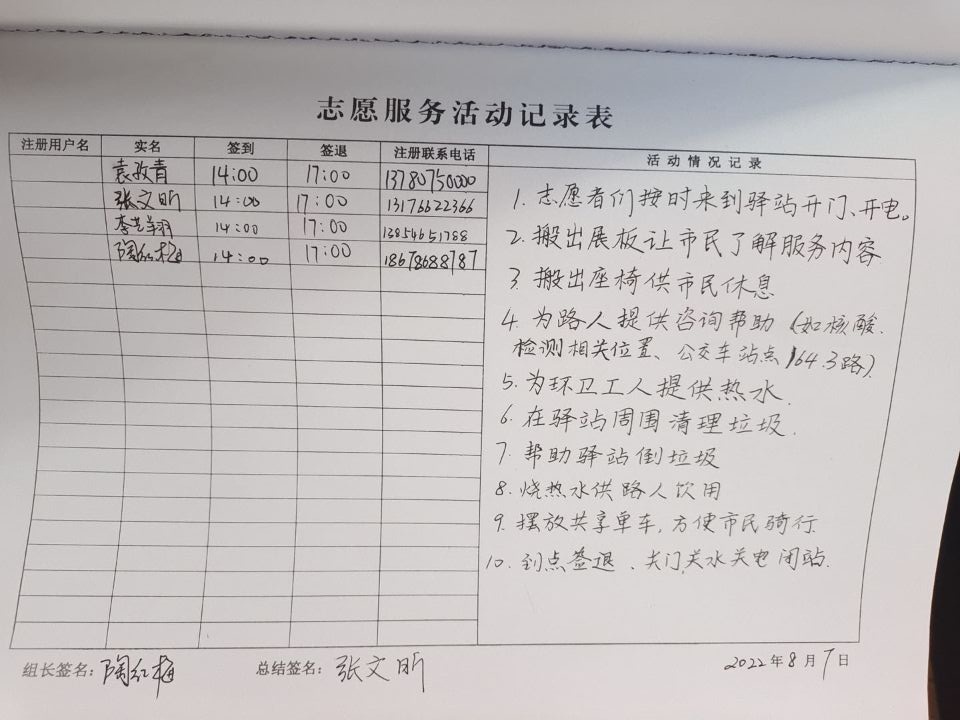 志愿服务活动记录表
注册用户名 实名 签到 签退 注册联系电话 活动情况记录
袁孜青 14:00 17:00 13780750000
张文昕 14:00 17:00 13176622366
李芸翔 14:00 17:00 13854651788
陶红梅 14:00 17:00 18678688787
1. 志愿者们按时来到驿站开门、开电。
2. 搬出展板让市民了解服务内容
3. 搬出座椅供市民休息
4. 为路人提供咨询帮助(如核酸
检测相关位置、公交车站点164.3路).
5. 为环卫工人提供热水.
6. 在驿站周围清理垃圾.
7. 帮助驿站倒垃圾
8. 烧热水供路人饮用
9. 摆放共享单车,方便市民骑行
10. 到点签退、关门关水关电闭站.
组长签名: 陶红梅 总结签名: 张文昕 2022年8月7日